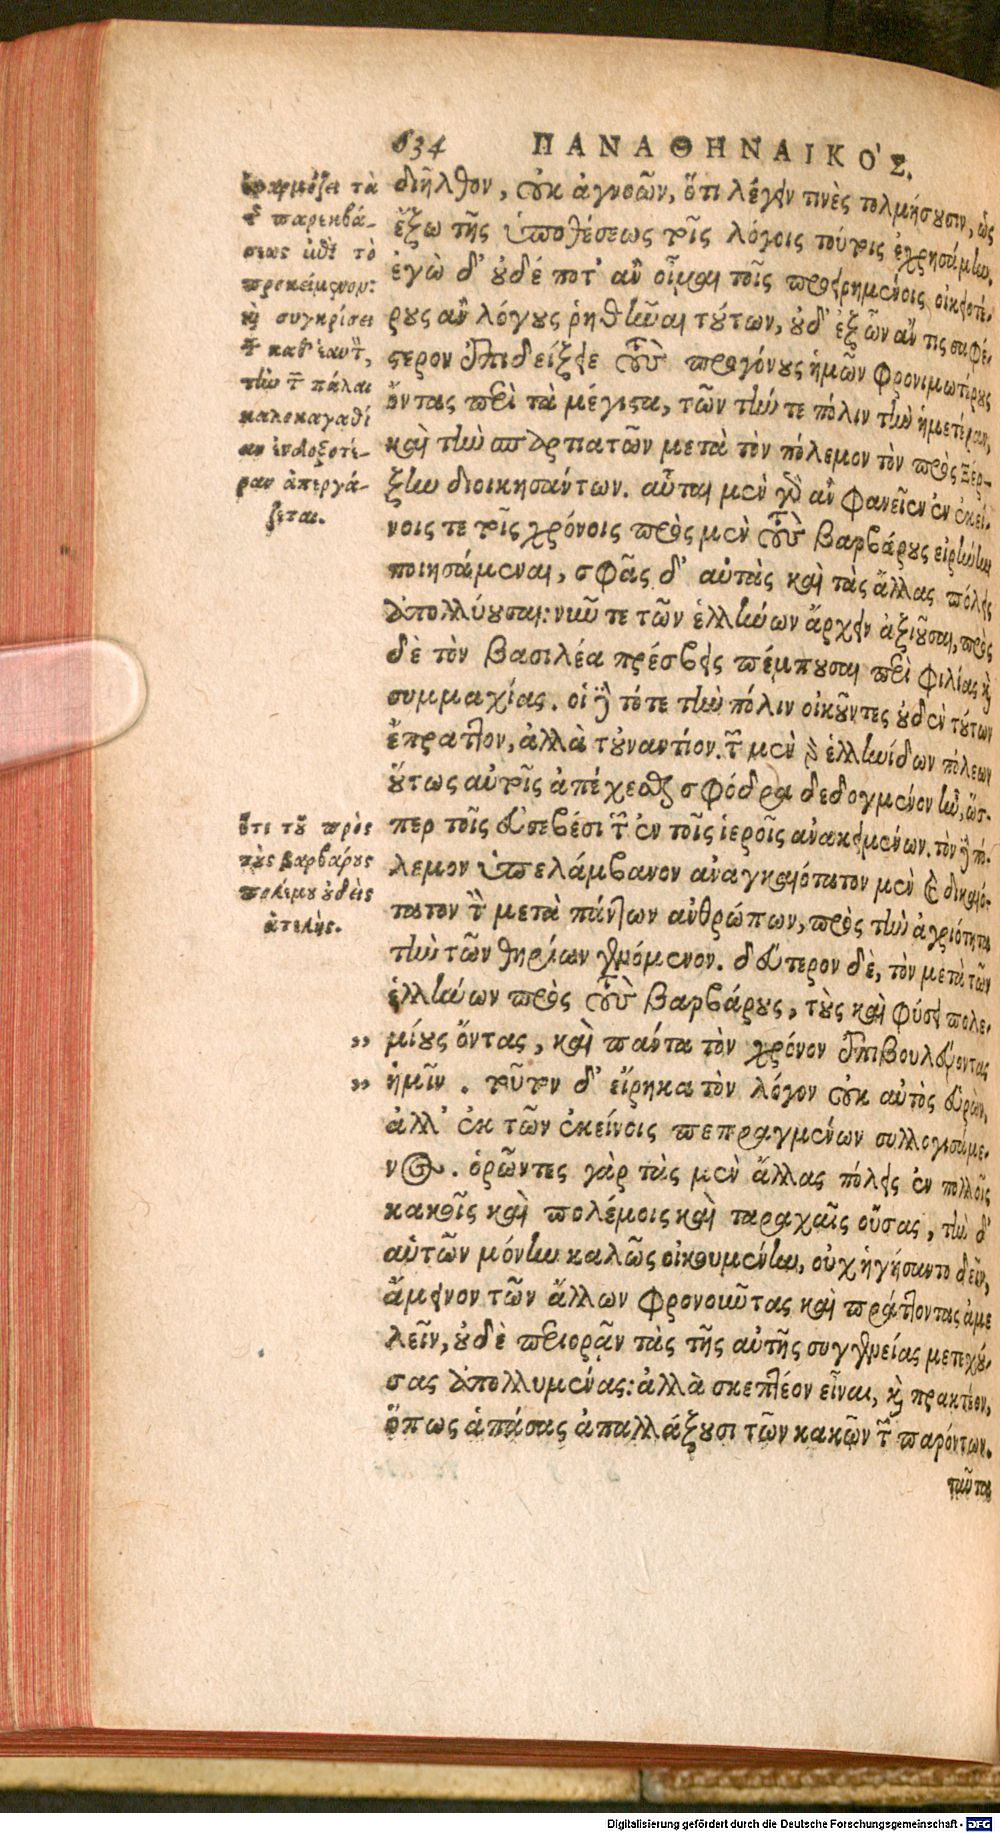 634 ΠΑΝΑΘΗΝΑΙΚΟ'Σ.
διῆλθον, οὐκ ἀγνοῶν, ὅτι λέγειν τινὲς τολμήσουσιν, ὡς
ἔξω τῆς ὑποθέσεως τοῖς λόγοις τούτοις ἐχρησάμην.
ἐγὼ δ' οὐδέ ποτ' ἂν οἶμαι τοῖς προειρημένοις οἰκειοτέ-
ρους ἂν λόγους ῥηθῆναι τούτων, οὐδ' ἐξ ὧν ἄν τις σαφέ-
στερον ἐπιδείξειε τοὺς προγόνους ἡμῶν φρονιμωτέρους
ὄντας περὶ τὰ μέγιστα, τῶν τήν τε πόλιν τὴν ἡμετέραν,
καὶ τὴν σπαρτιατῶν μετὰ τὸν πόλεμον τὸν πρὸς Ξέρ-
ξην διοικησάντων. αὗται μὲν γὰρ ἂν φανεῖεν ἐν ἐκεί-
νοις τε τοῖς χρόνοις πρὸς μὲν τοὺς βαρβάρους εἰρήνην
ποιησάμεναι, σφᾶς δ' αὐτὰς καὶ τὰς ἄλλας πόλεις
ἀπολλύουσαι: νῦν τε τῶν ἑλλήνων ἄρχειν ἀξιοῦσαι, πρὸς
δὲ τὸν βασιλέα πρέσβεις πέμπουσαι περὶ φιλίας καὶ
συμμαχίας. οἱ δὲ τότε τὴν πόλιν οἰκοῦντες οὐδὲν τούτων
ἔπραττον, ἀλλὰ τοὐναντίον. τῶν μὲν γὰρ ἑλληνίδων πόλεων
οὕτως αὐτοῖς ἀπέχεσθαι σφόδρα δεδογμένον ἦν, ὥσ-
περ τοῖς εὐσεβέσι τῶν ἐν τοῖς ἱεροῖς ἀνακειμένων. τὸν δὲ πό-
λεμον ὑπελάμβανον ἀναγκαιότατον μὲν καὶ δικαιό-
τατον τὸν μετὰ πάντων ἀνθρώπων, πρὸς τὴν ἀγριότητα
τὴν τῶν θηρίων γινόμενον. δεύτερον δὲ, τὸν μετὰ τῶν
ἑλλήνων πρὸς τοὺς βαρβάρους, τοὺς καὶ φύσει πολε-
,, μίους ὄντας, καὶ πάντα τὸν χρόνον ἐπιβουλεύοντας
,, ἡμῖν. τοῦτον δ' εἴρηκα τὸν λόγον οὐκ αὐτὸς εὑρὼν,
ἀλλ' ἐκ τῶν ἐκείνοις πεπραγμένων συλλογισάμε-
νος. ὁρῶντες γὰρ τὰς μὲν ἄλλας πόλεις ἐν πολλοῖς
κακοῖς καὶ πολέμοις καὶ ταραχαῖς οὔσας, τὴν δ'
αὑτῶν μόνην καλῶς οἰκουμένην, οὐχ ἡγήσαντο δεῖν,
ἄμεινον τῶν ἄλλων φρονοῦντας καὶ πράττοντας ἀμε
λεῖν, οὐδὲ περιορᾶν τὰς τῆς αὐτῆς συγγενείας μετεχού-
σας ἀπολλυμένας: ἀλλὰ σκεπτέον εἶναι, καὶ πρακτέον,
ὅπως ἁπάσας ἀπαλλάξουσι τῶν κακῶν τῶν παρόντων.
ταῦτα
ἐφαρμόζει τὰ
τῆς παρεκβά-
σεως ἐπὶ τὸ
προκείμενον:
καὶ συγκρίσει
τῶν καθ' ἑαυτὸν,
τὴν τῶν πάλαι
καλοκαγαθί
αν ἐνδοξοτέ-
ραν ἀπεργά-
ζεται.
ὅτι τοῦ πρὸς
τοὺς βαρβάρους
πολέμου οὐδεὶς
ἀτελὴς.
Digitalisierung gefördert durch die Deutsche Forschungsgemeinschaft - DFG